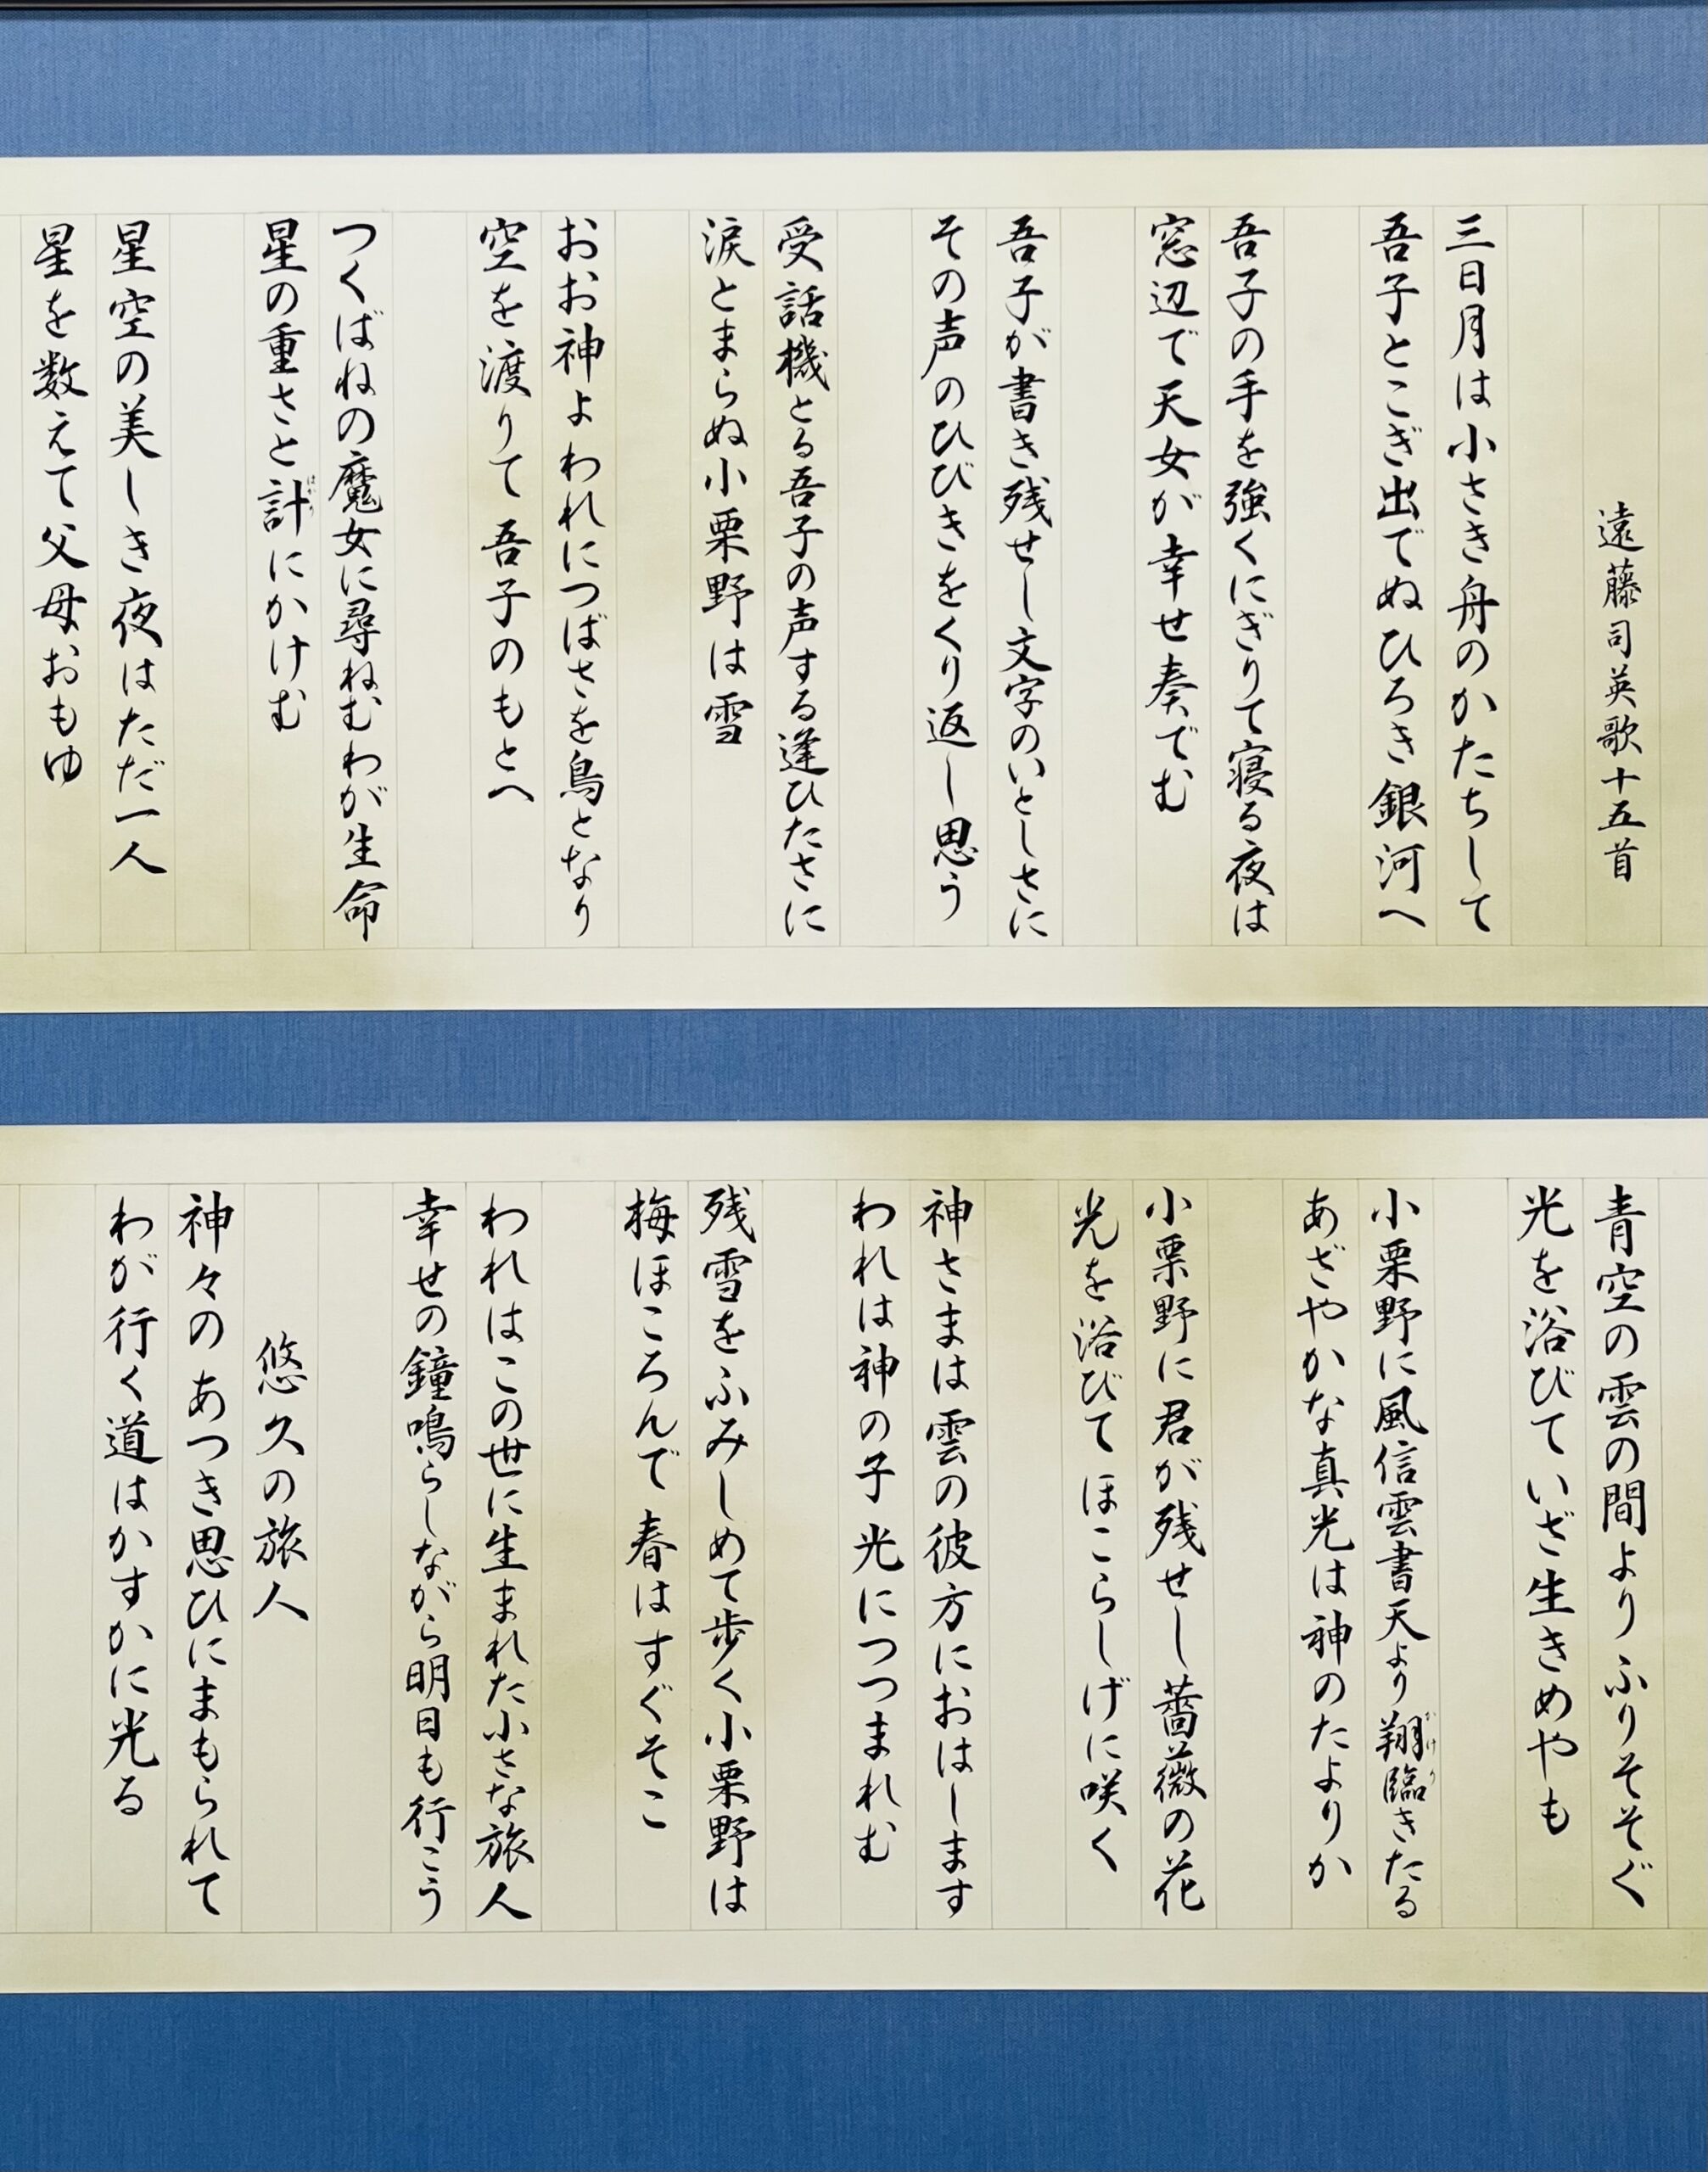 遠藤司英歌十五首
三日月は小さき舟のかたちして
吾子とこぎ出でぬひろき銀河へ
吾子の手を強くにぎりて寝る夜は
窓辺で天女が幸せ奏でむ
吾子が書き残せし文字のいとしさに
その声のひびきをくり返し思う
受話機とる吾子の声する逢ひたさに
涙とまらぬ小栗野は雪
おお神よわれにつばさを鳥となり
空を渡りて吾子のもとへ
つくばねの魔女に尋ねむわが生命
星の重さと計にかけむ
星空の美しき夜はただ一人
星を数えて父母おもゆ
青空の雲の間よりふりそそぐ
光を浴びていざ生きめやも
小栗野に風信雲書天より翔臨きたる
あざやかな真光は神のたよりか
小栗野に君が残せし薔薇の花
光を浴びてほこらしげに咲く
神さまは雲の彼方におはします
われは神の子光につつまれむ
残雪をふみしめて歩く小栗野は
梅ほころんで春はすぐそこ
われはこの世に生まれた小さな旅人
幸せの鐘鳴らしながら明日も行こう
悠久の旅人
神々のあつき思ひにまもられて
わが行く道はかすかに光る